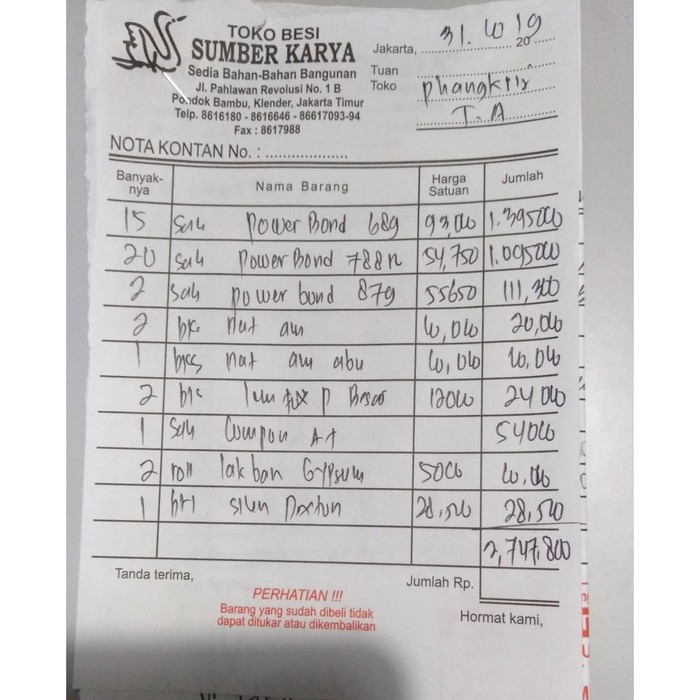 TOKO BESI
SUMBER KARYA
Sedia Bahan-Bahan Bangunan
Jl. Pahlawan Revolusi No. 1 B
Pondok Bambu, Klender, Jakarta Timur
Telp. 8616180 - 8616646 - 86617093-94
Fax : 8617988
Jakarta, 31. 10 20 19
Tuan
Toko
T.A
NOTA KONTAN No. :
Banyak-nya Nama Barang Harga Satuan Jumlah
15 Sak Power Bond 689 93,000 1.395000
20 Sak Power Bond 788 54,750 1.095000
2 Sak power bond 879 55650 111,300
2 nat am 10,000 20,000
1 nat am abu 10,000 10,000
2 12000 24000
1 Sak Compon A+ 54000
2 roll lakban Gypsum 5000 10,000
1 28,500 28,500
2,747,800
Tanda terima,
Jumlah Rp.
PERHATIAN !!!
Barang yang sudah dibeli tidak
dapat ditukar atau dikembalikan
Hormat kami,